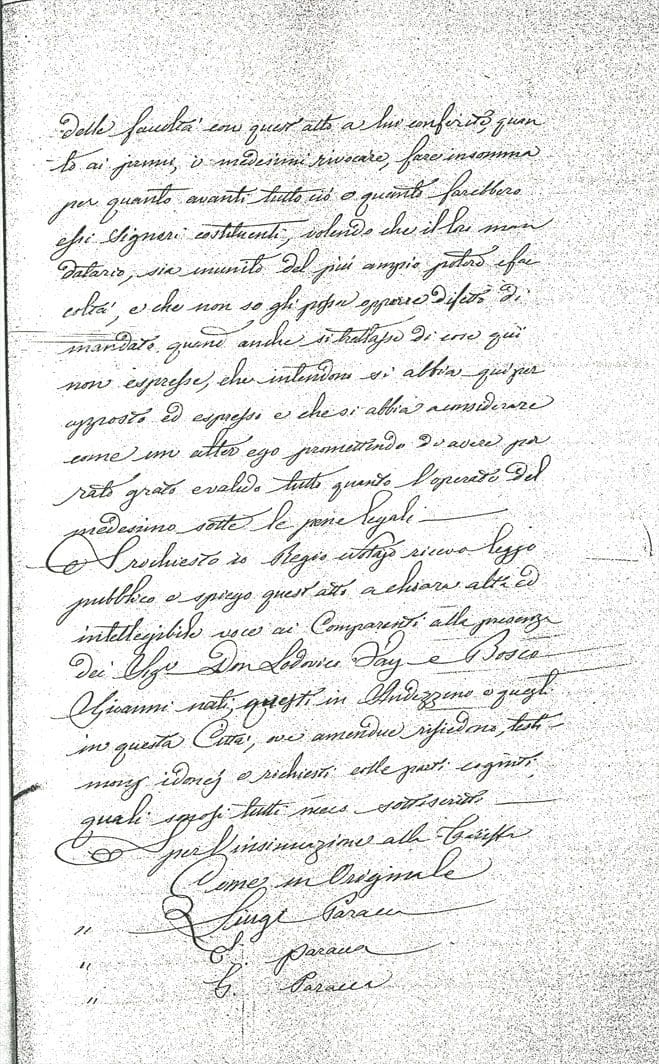 delle facoltà con quest'atto a lui conferite, quan
to ai primi, i medesimi rivocare, fare insomma
per quanto avanti tutto ciò e quanto farebbero
essi Signori costituenti, volendo che il loro man
datario, sia munito del più ampio potere e fa
coltà, e che non se gli possa opporre difetto di
mandato quand'anche si trattasse di cose qui
non espresse, che intendono si abbia qui per
apposto ed espresso e che si abbia a considerare
come un alter ego promettendo di avere per
rato grato e valido tutto quanto l'operato del
medesimo sotto le pene legali
richiesto io Regio Notajo ricevo leggo
pubblico e spiego quest'atto a chiara alta ed
intellegibile voce ai Comparenti alla presenza
dei Sigri Don Lodovico Fay e Bosco
Giovanni nati, questi in Andezzeno e quegli
in questa Città, ove amendue risiedono, testi-
monj idonej e richiesti colle parti cogniti,
quali sonosi tutti meco sottoscritti
per l'insinuazione alla Tariffa
Come in Originale
" Luigi Paracca
" paracca
" C. Paracca